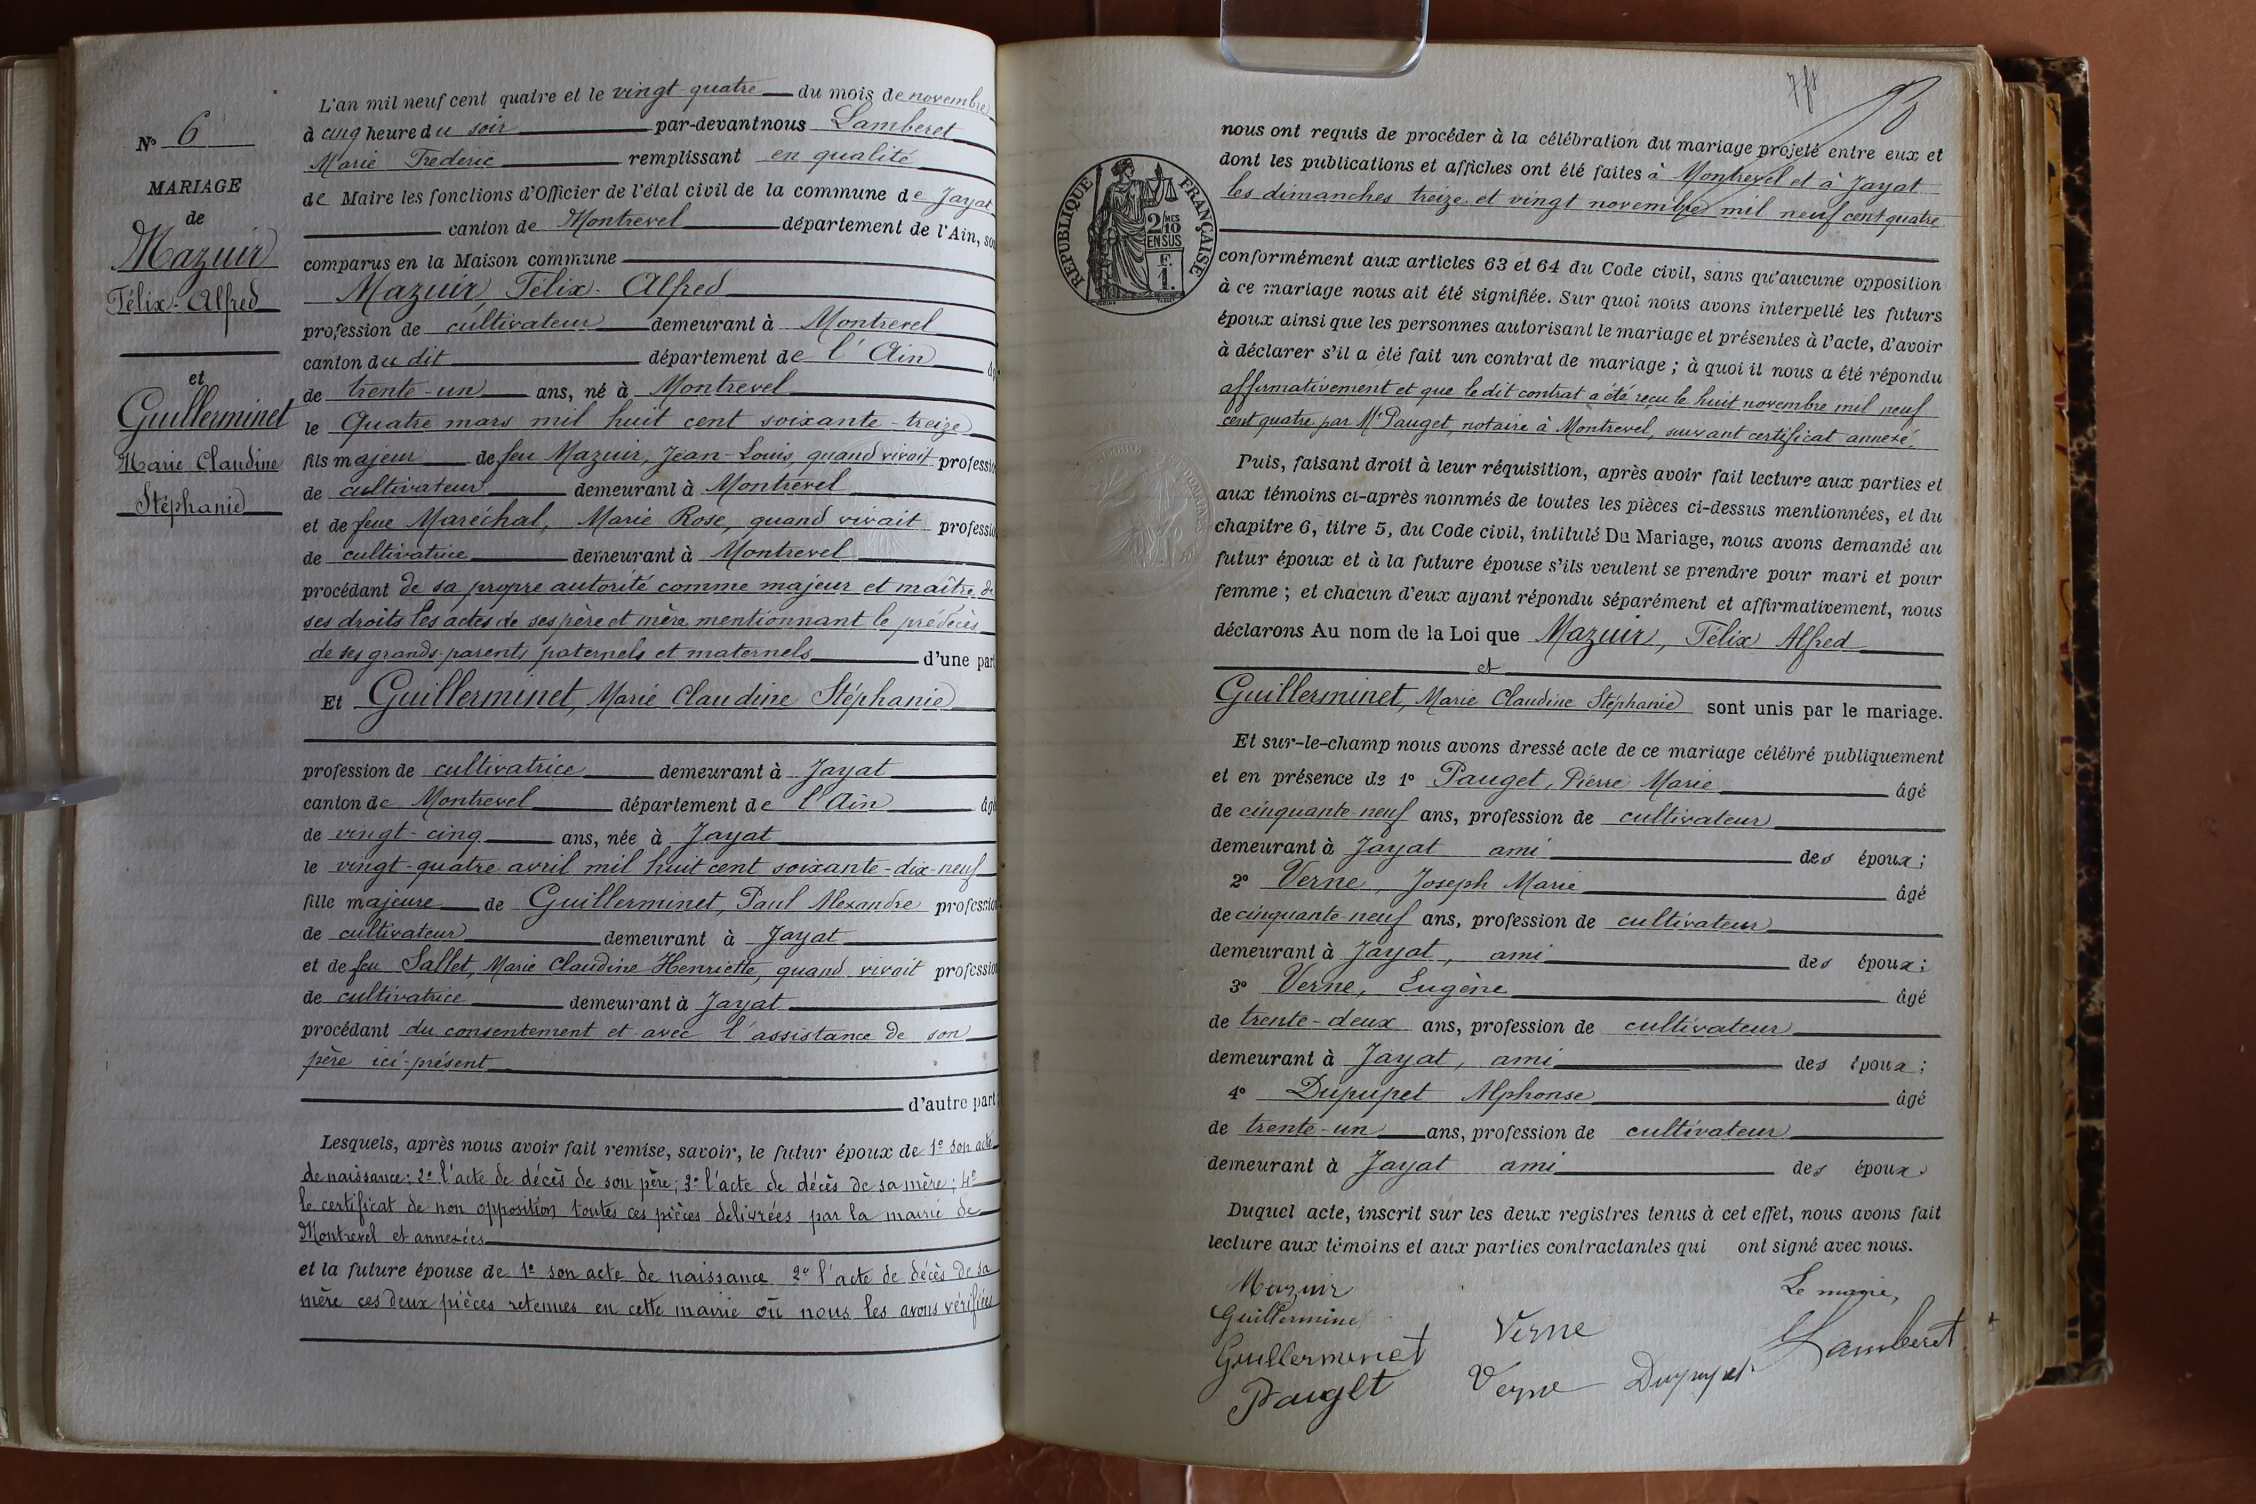 N° 6
MARIAGE
de
Mazuir
Félix-Alfred
et
Guillerminet
Marie Claudine
Stéphanie
L'an mil neuf cent quatre et le vingt-quatre du mois de novembre
à cinq heure du soir par-devant nous Lamberet
Marie Frédéric remplissant en qualité
de Maire les fonctions d'Officier de l'état civil de la commune de Jayat
canton de Montrevel département de l'Ain, so
comparus en la Maison commune
Mazuir, Félix-Alfred
profession de cultivateur demeurant à Montrevel
canton du dit département de l'Ain
de trente-un ans, né à Montrevel
le Quatre mars mil huit cent soixante-treize
fils majeur de feu Mazuir, Jean-Louis, quand vivait professio
de cultivateur demeurant à Montrevel
et de feue Maréchal, Marie Rose, quand vivait professio
de cultivatrice demeurant à Montrevel
procédant de sa propre autorité comme majeur et maître de
ses droits les actes de ses père et mère mentionnant le prédécès
de ses grands-parents paternels et maternels d'une part
Et Guillerminet, Marie Claudine Stéphanie
profession de cultivatrice demeurant à Jayat
canton de Montrevel département de l'Ain âgé
de vingt-cinq ans, née à Jayat
le vingt-quatre avril mil huit cent soixante-dix-neuf
fille majeure de Guillerminet, Paul Alexandre profession
de cultivateur demeurant à Jayat
et de feu Sallet, Marie Claudine Henriette, quand vivait profession
de cultivatrice demeurant à Jayat
procédant du consentement et avec l'assistance de son
père ici-présent
d'autre part
Lesquels, après nous avoir fait remise, savoir, le futur époux de 1° son acte
de naissance; 2° l'acte de décès de son père; 3° l'acte de décès de sa mère; 4°
le certificat de non opposition toutes ces pièces delivrées par la mairie de
Montrevel et annexées
et la future épouse de 1° son acte de naissance 2° l'acte de décès de sa
mère ces deux pièces retenues en cette mairie où nous les avons vérifiées
RÉPUBLIQUE FRANÇAISE
2/10 MES
EN SUS
F.
1.
nous ont requis de procéder à la célébration du mariage projeté entre eux et
dont les publications et affiches ont été faites à Montrevel et à Jayat
les dimanches treize et vingt novembre mil neuf cent quatre
conformément aux articles 63 et 64 du Code civil, sans qu'aucune opposition
à ce mariage nous ait été signifiée. Sur quoi nous avons interpellé les futurs
époux ainsi que les personnes autorisant le mariage et présentes à l'acte, d'avoir
à déclarer s'il a été fait un contrat de mariage; à quoi il nous a été répondu
affirmativement et que le dit contrat a été reçu le huit novembre mil neuf
cent quatre par Me Pauget, notaire à Montrevel, suivant certificat annexé.
Puis, faisant droit à leur réquisition, après avoir fait lecture aux parties et
aux témoins ci-après nommés de toutes les pièces ci-dessus mentionnées, et du
chapitre 6, titre 5, du Code civil, intitulé Du Mariage, nous avons demandé au
futur époux et à la future épouse s'ils veulent se prendre pour mari et pour
femme; et chacun d'eux ayant répondu séparément et affirmativement, nous
déclarons Au nom de la Loi que Mazuir, Félix Alfred
et
Guillerminet, Marie Claudine Stéphanie sont unis par le mariage.
Et sur-le-champ nous avons dressé acte de ce mariage célébré publiquement
et en présence de 1° Pauget, Pierre Marie âgé
de cinquante-neuf ans, profession de cultivateur
demeurant à Jayat ami des époux;
2° Verne, Joseph Marie âgé
de cinquante-neuf ans, profession de cultivateur
demeurant à Jayat, ami des époux;
3° Verne, Eugène âgé
de trente-deux ans, profession de cultivateur
demeurant à Jayat, ami des époux;
4° Dupupet Alphonse âgé
de trente-un ans, profession de cultivateur
demeurant à Jayat ami des époux.
Duquel acte, inscrit sur les deux registres tenus à cet effet, nous avons fait
lecture aux témoins et aux parties contractantes qui ont signé avec nous.
Mazuir
Le maire,
Guillerminet
Verne
Lamberet
Guillerminet
Pauget
Verne
Dupupet